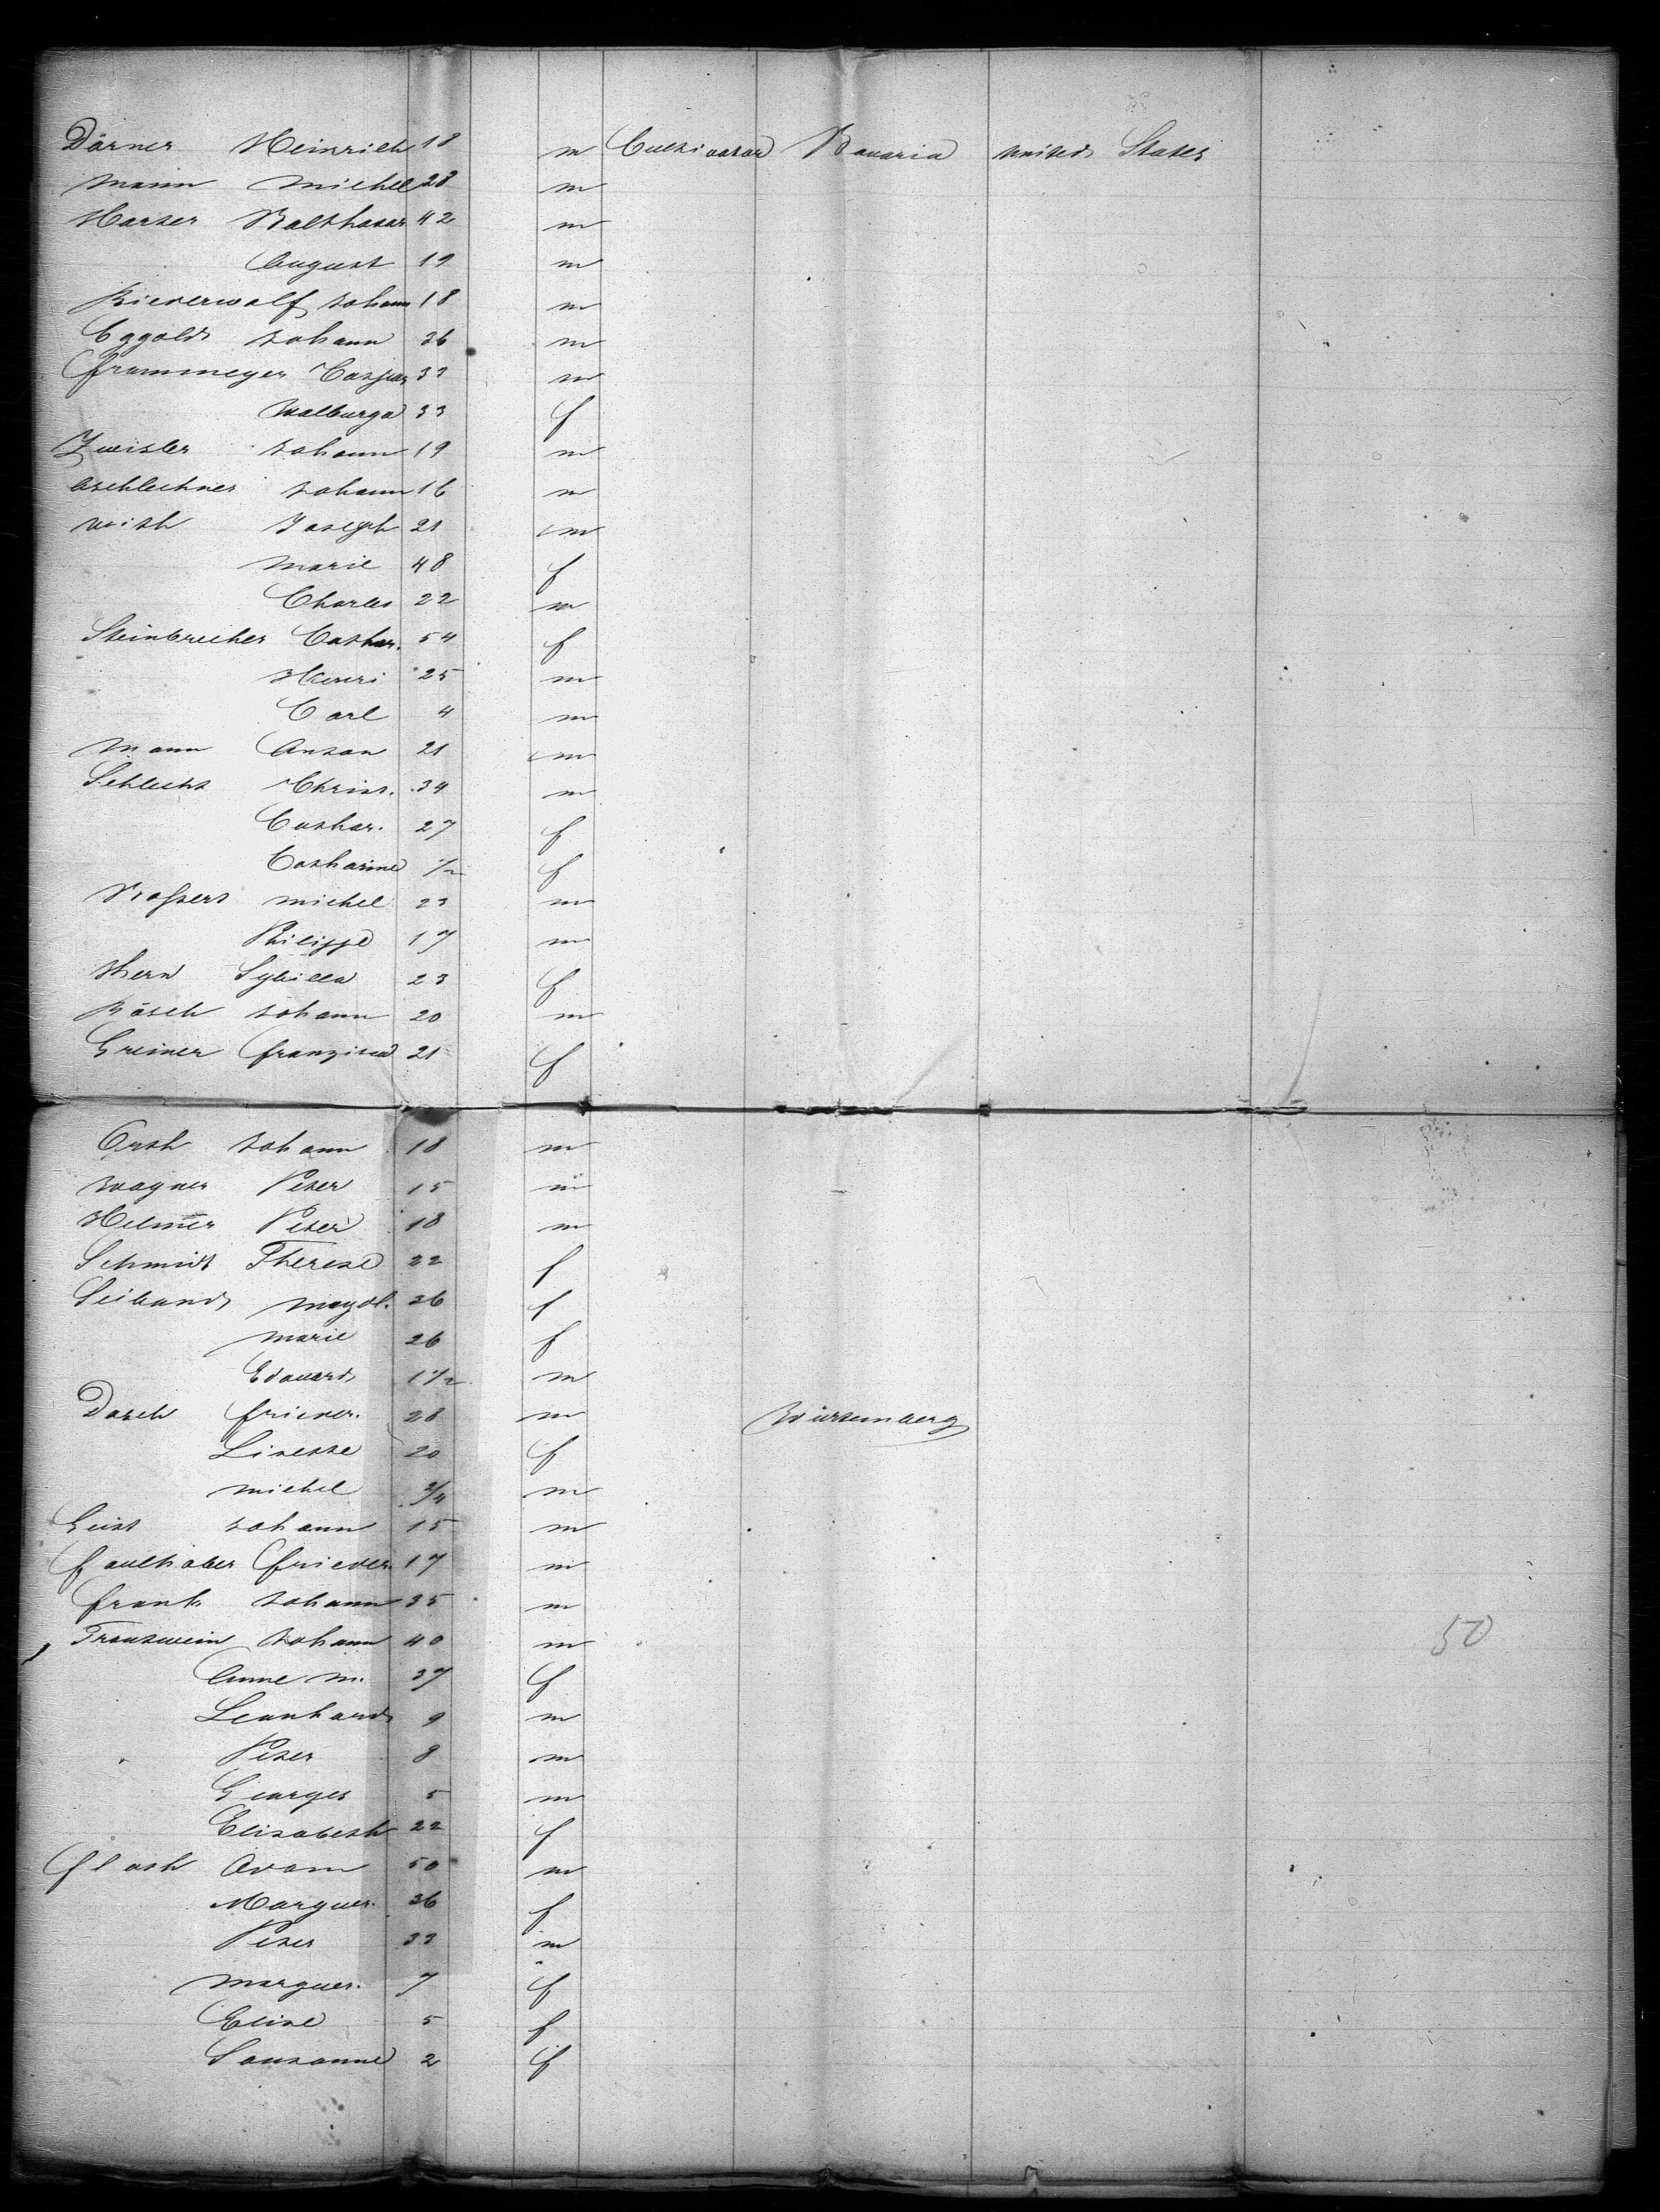 Dörner Heinrich 18 m Cultivator Bavaria united States
Mann Michel 28 m
Harter Balthasar 42 m
August 19 m
Biederwolf Johann 18 m
Eggold Johann 36 m
Frammeyer Caspar 33 m
Walburga 33 f
Zwisler Johann 19 m
Aschlechner Johann 16 m
Joseph 21 m
Marie 48 f
Charles 22 m
Steinbrecher Cathar. 54 f
Henri 25 m
Carl 4 m
Mann Anton 21 m
Schlecht Christ. 34 m
Cathar. 27 f
Catharine 1/2 f
Michel 23 m
Philippe 17 m
Hern Sybilla 23 f
Bösch Johann 20 m
Greiner Franzisca 21 f
Orth Johann 18 m
Wagner Peter 15 m
Helmer Peter 18 m
Schmidt Therese 22 f
Seiband Magd. 36 f
Marie 26 f
Edouard 1 1/2 m
Dasch Frieder. 28 m Würtemberg
Lisette 20 f
Michel 3/4 m
Geist Johann 15 m
Faulhaber Frieder. 17 m
Frank Johann 35 m
Trautwein Johann 40 m 50
Anne M. 37 f
Leonhard 9 m
Peter 8 m
Georges 5 m
Elisabeth 22 f
Flath Adam 50 m
Marguer. 36 f
Peter 33 m
Marguer. 7 f
Elise 5 f
Sousanne 2 f